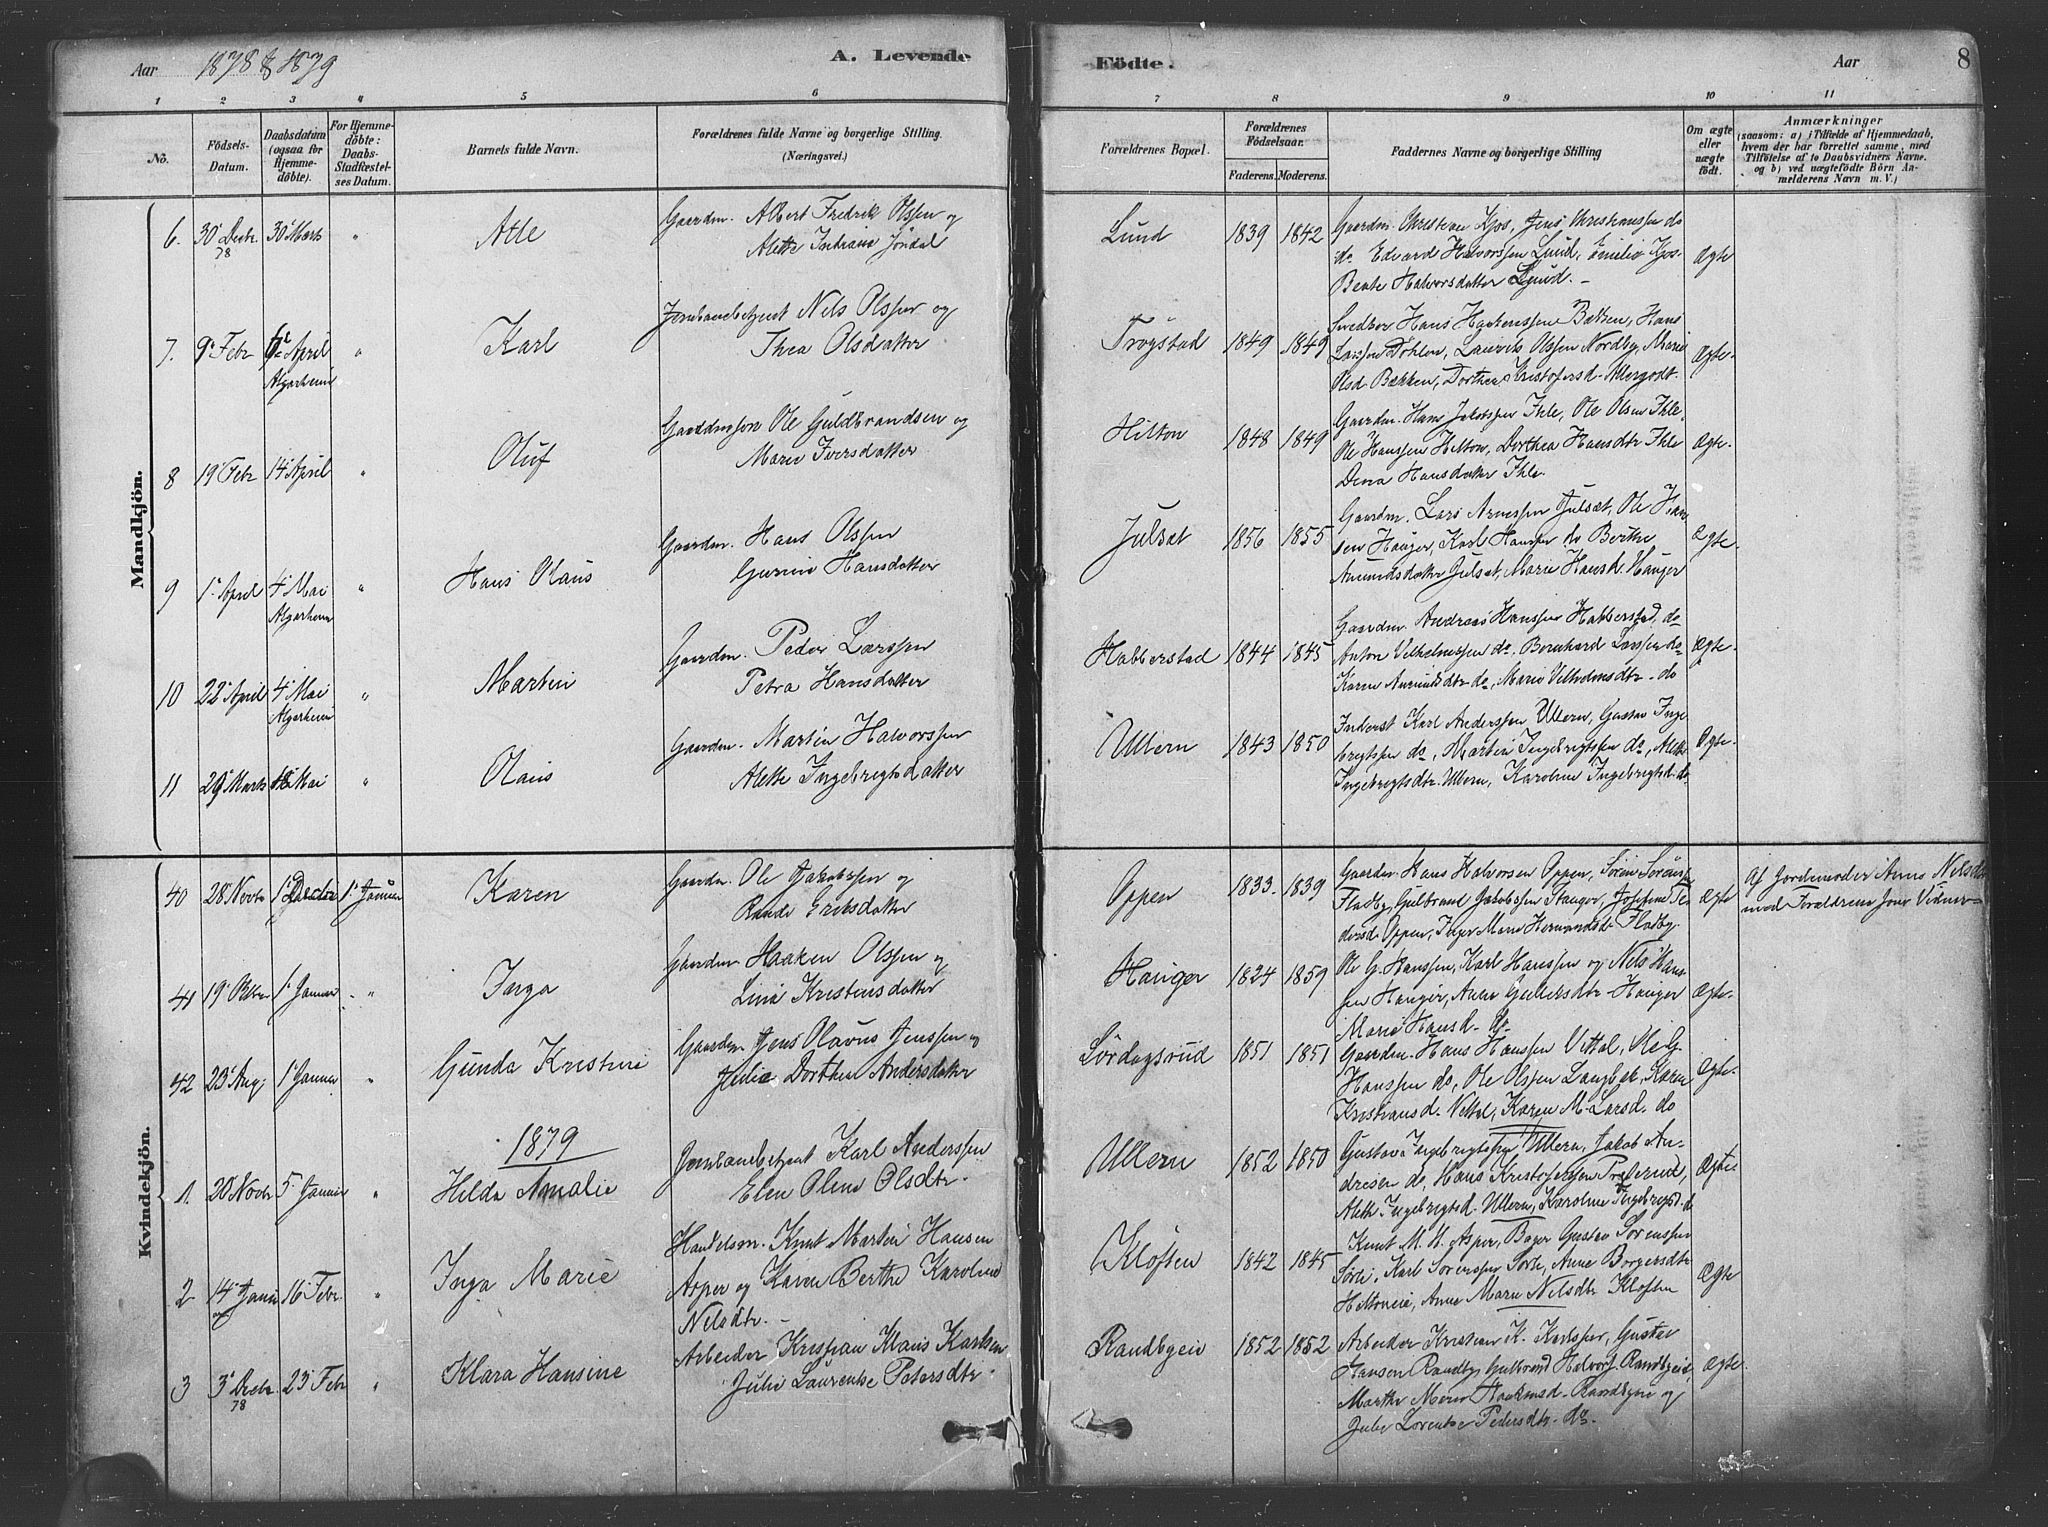 Aar 1878 & 1879
A. Levende
Födte.
Aar
8
1 2 3 4 5 6 7 8 9 10 11
No.
Födsels-
Datum.
Daabsdatum
(ogsaa for
Hjemme-
døbte).
For Hjemme-
döbte:
Daabs-
Stadfæstel-
ses Datum.
Barnets fulde Navn.
Forældrenes fulde Navne og borgerlige Stilling.
(Næringsvei.)
Forældrenes Bopæl.
Forældrenes
Födselsaar.
Faderens. Moderens.
Faddernes Navne og borgerlige Stilling
Om ægte
eller
uægte
födt.
Anmærkninger
(saasom: a) i Tilfælde af Hjemmedaab,
hvem der har forrettet samme, med
Tilföielse af to Daabsvidners Navne.
og b) ved uægtefödte Börn An-
melderens Navn m. V.)
Mandkjön.
6. 30 Decbr. 78 30 Marts " Atle
Gaardm. Albert Fredrik Olssen og
Alette Indiane Jöndal
Lund 1839 1842
Gaardm. Christian Kjos, Jens Christianssen do
do Edvard Halvorssen Lund, Emilie Kjos
Beate Halvorsdatter Lund. -
Ægte
7. 9 Febr 6 April Algarheim " Karl
Jernbanebetjent Nils Olssen og
Thea Olsdatter
Trögstad 1849 1849
Hans
Larssen Laurits Olssen Nordby, Marie
Olsd. Bækken, Dorthea Kristofersd.
Ægte.
8 19 Febr 14 April " Oluf
Gaardmsön Ole Guldbrandsen og
Marie Iversdatter
Hilton 1848 1849
Gaardm. Hans Jakobssen Ihle, Ole Olsen Ihle,
Ole Hanssen Hilton, Dorthea Hansdtr Ihle
Dina Hansdatter Ihle.
Ægte.
9 1 April 4 Mai Algarheim " Hans Olaus
Gaardm. Hans Olssen
Gurine Hansdatter
Julsæt 1856 1855
Gaardm. Lars Arnessen Julsæt, Ole Han
sen Hauger, Karl Hanssen do Berthe
Amundsdatter Julsæt, Marie Hansd. Hauger
Ægte.
10 22 April 4 Mai Algarheim " Martin
Gaardm. Peder Larssen
Petra Hansdatter
Habberstad 1844 1845
Gaardm. Andreas Hanssen Habberstad, do
Anton Vilhelmssen do, Bernhard Larssen do
Karen Amundsdtr do, Marie Vilhelmsdtr do
Ægte.
11 29 Marts Mai " Olaus
Gaardm. Martin Halvorssen
Alette Ingebrigtsdatter
Ullern 1843 1850
Inderst Karl Anderssen Ullern, Gustav Inge
brigtssen do, Martin Ingebrigtssen do, Alette
Ingebrigtsdtr. Ullern, Karoline Ingebrigtsd. do
Ægte.
Kvindekjön.
40 28 Novbr 1 Decbr 1 Januar Karen
Gaardm. Ole Jakobssen og
Randi Eriksdatter
Oppen 1833. 1839
Gaardm. Hans Halvorsen Oppen, Sören Sörens
Fladby, Gulbrand Jakobssen Hauger, Josefine Pe
dersd. Oppen, Inger Marie Hermandsdr Fladby.
Ægte
Af Jordemoder Anne Nilsdtr
med Forældrene som Vidner
41 19 1 Januar " Inga
Gaardm. Haaken Olssen og
Lina Kristensdatter
Hauger 1824 1859
Ole G. Hanssen, Karl Hanssen og Nils Hans-
sen Hauger, Anne Gullersdtr Hauger
Marie Hansd. do
Ægte.
42 23 Aug; 1 Januar " Gunda Kristine
Gaardm. Jens Olavus Jenssen og
Julie Dorthea Andersdatter
Sördagsrud 1851 1851
Gaardm. Hans Hanssen Vittal, Ole G.
Hanssen do, Ole Olssen Langbak, Karen
Kristiansd. Vettal, Karen M. Larsd. do
Ægte.
1879
1. 20 Novbr 5 Januar " Hilda Amalie
Jernbanebetjent Karl Anderssen
Elen Olene Olsdtr.
Ullern 1852 1850
Gustav Ingebrigtssen Ullern, Jakob An-
dresen do, Hans Kristofersen
Alethe Ingebrigtsd. Ullern, Karoline Ingebrigtsd. do
Ægte
2 14 Januar 16 Febr. " Inga Marie
Handelsm. Knut Martin Hansen
Asper og Karen Berthe Karoline
Nilsdtr. -
Klöften 1842 1845
Knut M. H. Asper, Bager Gustav Sörenssen
Sörli, Karl Sörenssen Sörli, Anne Borgersdtr
Hiltoneie, Anne Marie Nilsdtr Klöften
Ægte
3 3 Decbr. 78 23 Febr " Klara Hansine
Arbeider Kristian Klaus Karlsen
Julie Laurentse Petersdtr.
Randbyeie 1852 1852
Arbeider Kristian K. Karlssen, Gustav
Hansen Randby, Gulbrand Halvors. Randbyeie
Marthe Marie Haakensd. Randbyeie og
Julie Lorentse Pedersdtr. do.
Ægte.